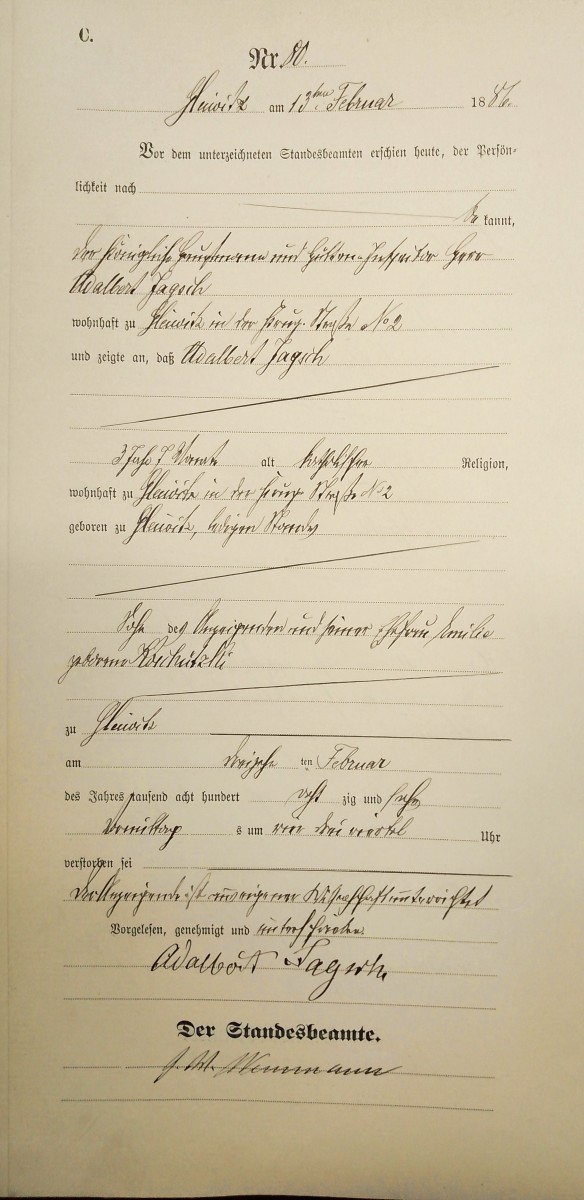 C.
Nr. 80.
Gleiwitz am 13ten Februar 1886.
Vor dem unterzeichneten Standesbeamten erschien heute, der Persön-
lichkeit nach
be kannt,
der Königliche und Hütten-Inspektor Herr
Adalbert Jagsch
wohnhaft zu Gleiwitz in der Straße No 2
und zeigte an, daß Adalbert Jagsch
3 Jahr 7 Monate alt katholischer Religion,
wohnhaft zu Gleiwitz in der Straße No 2
geboren zu Gleiwitz, ledigen Standes
Sohn des Anzeigenden und seiner Ehefrau Emilie
geborene Koschützki
zu Gleiwitz
am dreizehn ten Februar
des Jahres tausend acht hundert acht zig und sechs
Vormittag s um drei viertel Uhr
verstorben sei
Der Anzeigende ist aus eigener Wissenschaft unterrichtet
Vorgelesen, genehmigt und unterschrieben.
Adalbert Jagsch
Der Standesbeamte.